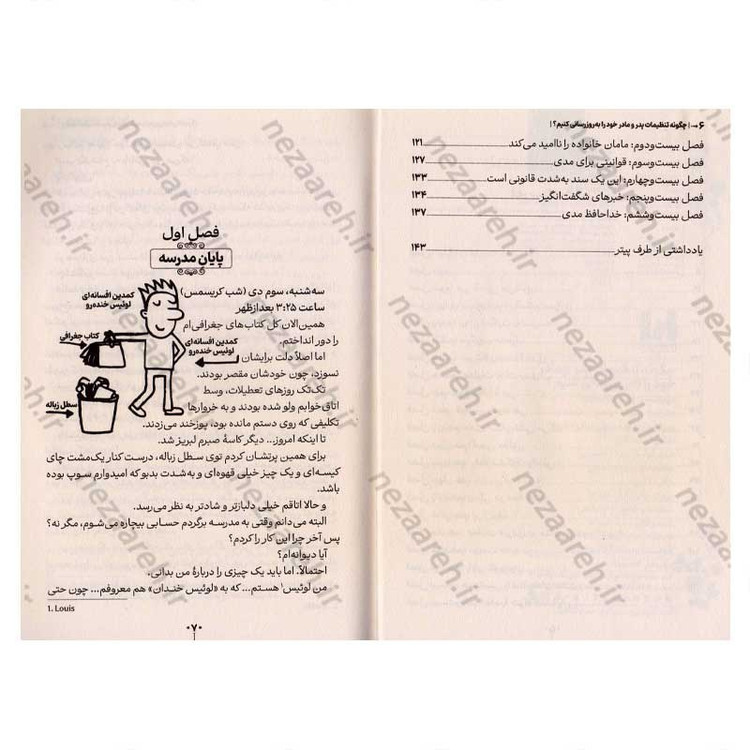 ۶ ـ | چگونه تنظیمات پدر و مادر خود را به‌روزرسانی کنیم؟ |
فصل بیست‌ودوم: مامان خانواده را ناامید می‌کند ۱۲۱
فصل بیست‌وسوم: قوانینی برای مدی ۱۲۷
فصل بیست‌وچهارم: این یک سند به‌شدت قانونی است ۱۳۳
فصل بیست‌وپنجم: خبرهای شگفت‌انگیز ۱۳۴
فصل بیست‌وششم: خداحافظ مدی ۱۳۷
یادداشتی از طرف پیتر ۱۴۳
فصل اول
پایان مدرسه
سه‌شنبه، سوم دی (شب کریسمس)
ساعت ۳:۲۵ بعدازظهر
همین‌الان کل کتاب‌های جغرافی‌ام
را دور انداختم.
اما اصلاً دلت برایشان
نسوزد، چون خودشان مقصر بودند.
تک‌تک روزهای تعطیلات، وسط
اتاق‌خوابم ولو شده بودند و به خروارها
تکلیفی که روی دستم مانده بود، پوزخند می‌زدند.
تا اینکه امروز... دیگر کاسهٔ صبرم لبریز شد.
برای همین پرتشان کردم توی سطل زباله، درست کنار یک‌مشت چای
کیسه‌ای و یک چیز خیلی قهوه‌ای و به‌شدت بدبو که امیدوارم سوپ بوده
باشد.
و حالا اتاقم خیلی دلبازتر و شادتر به نظر می‌رسد.
البته می‌دانم وقتی به مدرسه برگردم حسابی بیچاره می‌شوم، مگر نه؟
پس آخر چرا این کار را کردم؟
آیا دیوانه‌ام؟
احتمالاً. اما باید یک چیزی را دربارهٔ من بدانی.
من لوئیس۱ هستم... که به «لوئیس خندان» هم معروفم... چون حتی
کمدین افسانه‌ای
لوئیس خنده‌رو
کتاب جغرافی
کمدین افسانه‌ای
لوئیس خنده‌رو
سطل زباله
1. Louis
۰۷۰
nezaareh.ir
nezaareh.ir
nezaareh.ir
nezaareh.ir
nezaareh.ir
nezaareh.ir
nezaareh.ir